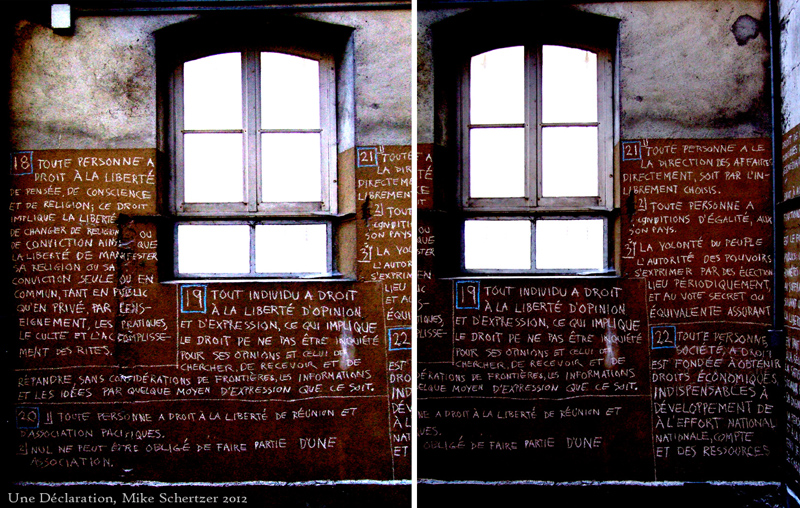 18 TOUTE PERSONNE A
DROIT À LA LIBERTÉ
DE PENSÉE, DE CONSCIENCE
ET DE RELIGION; CE DROIT
IMPLIQUE LA LIBERTÉ
DE CHANGER DE RELIGION OU
DE CONVICTION AINSI QUE
LA LIBERTÉ DE MANIFESTER
SA RELIGION OU SA
CONVICTION SEULE OU EN
COMMUN, TANT EN PUBLIC
QU'EN PRIVÉ, PAR L'ENS-
EIGNEMENT, LES PRATIQUES,
LE CULTE ET L'ACCOMPLISSE-
MENT DES RITES.
19 TOUT INDIVIDU A DROIT
À LA LIBERTÉ D'OPINION
ET D'EXPRESSION, CE QUI IMPLIQUE
LE DROIT DE NE PAS ÊTRE INQUIÉTÉ
POUR SES OPINIONS ET CELUI DE
CHERCHER, DE RECEVOIR, ET DE
RÉPANDRE, SANS CONSIDÉRATIONS DE FRONTIÈRES, LES INFORMATIONS
ET LES IDÉES PAR QUELQUE MOYEN D'EXPRESSION QUE CE SOIT.
20 1) TOUTE PERSONNE A DROIT À LA LIBERTÉ DE RÉUNION ET
D'ASSOCIATION PACIFIQUES.
2) NUL NE PEUT ÊTRE OBLIGÉ DE FAIRE PARTIE D'UNE
ASSOCIATION.
21 1) TOUTE
LA DIR
DIRECTEME
LIBREMEN
2) TOUT
CONDITIONS
SON PAYS.
3) LA VOL
L'AUTOR
S'EXPRIME
LIEU
ET AU
ÉQUIV
22
EST
DROI
INDI
DÉVE
À L'E
NATI
ET
19 TOUT INDIVIDU A DROIT
À LA LIBERTÉ D'OPINION
ET D'EXPRESSION, CE QUI IMPLIQUE
LE DROIT DE NE PAS ÊTRE INQUIÉTÉ
POUR SES OPINIONS ET CELUI DE
CHERCHER, DE RECEVOIR, ET DE
DÉRATIONS DE FRONTIÈRES, LES INFORMATIONS
ELQUE MOYEN D'EXPRESSION QUE CE SOIT.
NE A DROIT À LA LIBERTÉ DE RÉUNION ET
OBLIGÉ DE FAIRE PARTIE D'UNE
21 1) TOUTE PERSONNE A LE
LA DIRECTION DES AFFAIRES
DIRECTEMENT, SOIT PAR L'IN-
LIBREMENT CHOISIS.
2) TOUTE PERSONNE A
CONDITIONS D'ÉGALITÉ, AUX
SON PAYS.
3) LA VOLONTÉ DU PEUPLE
L'AUTORITÉ DES POUVOIRS
S'EXPRIMER PAR DES ÉLECTION
LIEU PÉRIODIQUEMENT,
ET AU VOTE SECRET OU
ÉQUIVALENTE ASSURANT
22 TOUTE PERSONNE,
SOCIÉTÉ, A DROIT
EST FONDÉE À OBTENIR
DROITS ÉCONOMIQUES,
INDISPENSABLES À
DÉVELOPPEMENT DE
À L'EFFORT NATIONAL
NATIONALE, COMPTE
ET DES RESSOURCES
Une Déclaration, Mike Schertzer 2012